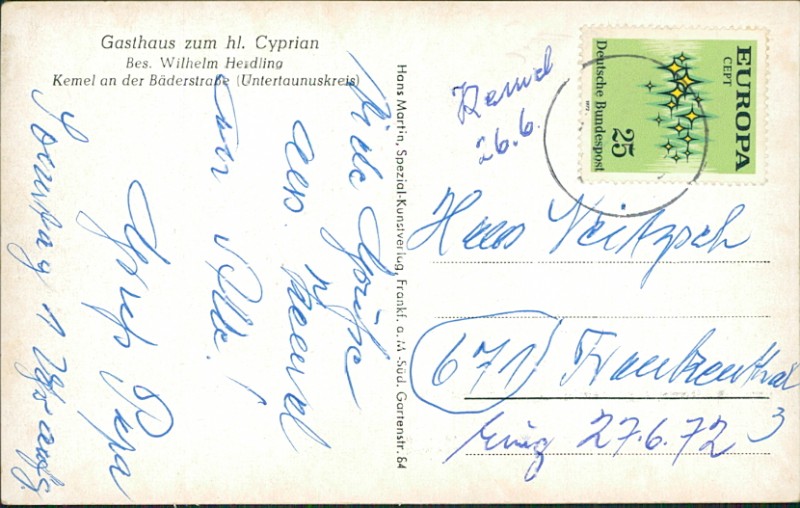 Gasthaus zum hl. Cyprian
Bes. Wilhelm Heidling
Kemel an der Bäderstraße (Untertaunuskreis)
Viele Grüße
aus Kemel
von
Alle!
Papa
Sonntag 1 Uhr
Hans Martin, Spezial-Kunstverlag, Frankf. a. M.-Süd. Gartenstr. 64
Kemel
26.6.
EUROPA
CEPT
25
Deutsche Bundespost
Hans Neitzsch
671 Frankenthal 3
27.6.72